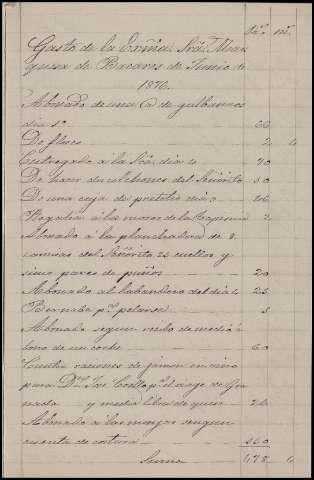 Rs. ms.
Gasto de la Exma. Sra. Mar
quesa de Bacares de Junio de
1876.
Abonado de una @ de garbanzos
dia 1º 66
De flores 2 4
Entregado á la Sra. dia 4 70
De hacer dos colchones del Señorito 30
De una caja de pastelas dia 46
Regalias á las mozas de la 2
Abonado á la planchadora de 8
camisas del Señorito 23 cuellos y
cinco pares de puños 20
Abonado al labandero del dia 4 23
Bernabe pr. pelarse 5
Abonado segun recibo de medio á
bono de un coche 60
Cuatro raciones de jamon en vino
para Dn. José pa. el viaje de Gra
nada y media libra de queso 24
Abonado á las monjas segun
cuenta de costura 130
Suma 478 4